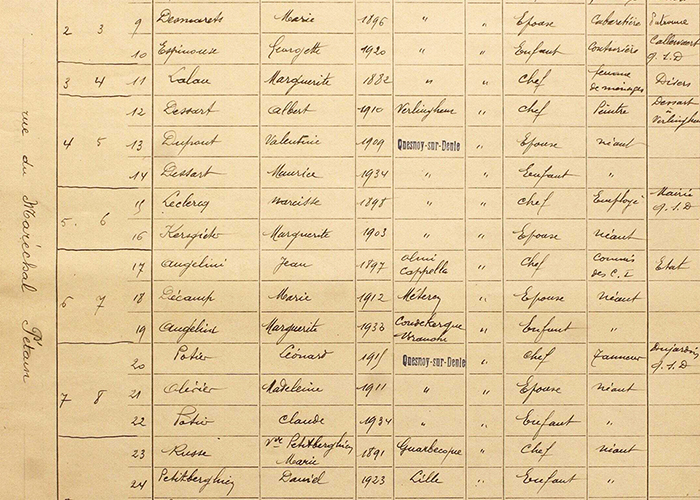 rue du Maréchal Pétain
2 3 9 Desmarets Marie 1896 " " Epouse Cabaretière Patronne
10 Espinouse Georgette 1920 " " Enfant Couturière Q. S. D
3 4 11 Lalau Marguerite 1882 " " Chef femme de ménages Divers
12 Dessart Albert 1910 Verlinghem " Chef Peintre Dessart à Verlinghem
4 5 13 Dupont Valentine 1909 Quesnoy-sur-Deule " Epouse néant
14 Dessart Maurice 1934 " " Enfant "
15 Leclercq Narcisse 1898 " " Chef Employé Mairie Q. S. D
5. 6 16 Marguerite 1903 " " Epouse Néant
17 Angelini Jean 1897 Cappelle " Chef Commis des C. I Etat
6 7 18 Décamp Marie 1912 Méteren " Epouse Néant
19 Angelini Marguerite Coudekerque " Enfant "
20 Potier Léonard Quesnoy-sur-Deule " Chef Tanneur Dujardin Q. S. D
7 8 21 Olivier Madeleine 1911 " " Epouse néant
22 Potier Claude 1934 " " Enfant "
23 Russe Vve Petitberghien Marie 1891 Guarbecque " Chef néant
24 Petitberghien Daniel 1923 Lille " Enfant "